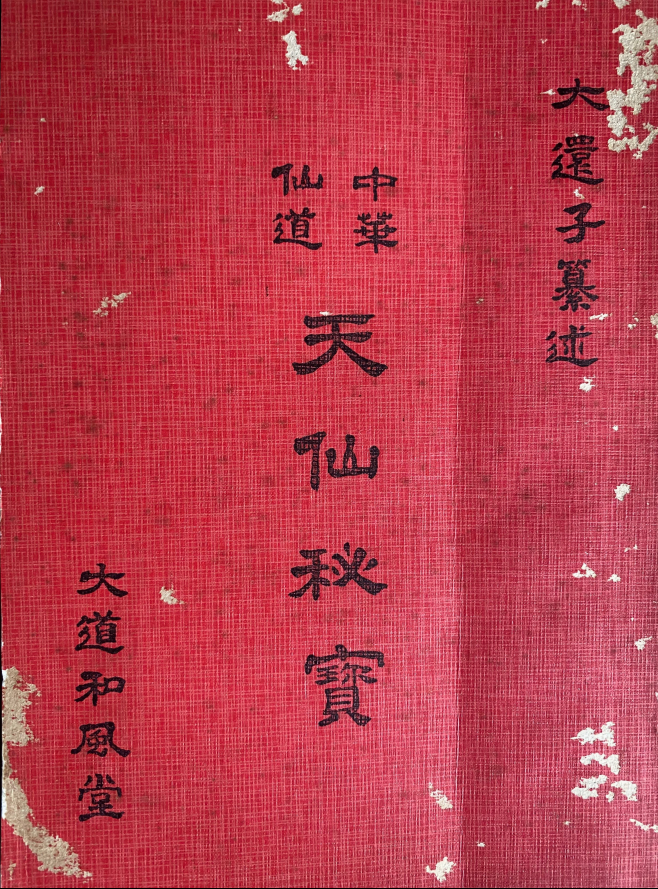 大還子纂述
中華
仙道
天仙秘寶
大道和風堂